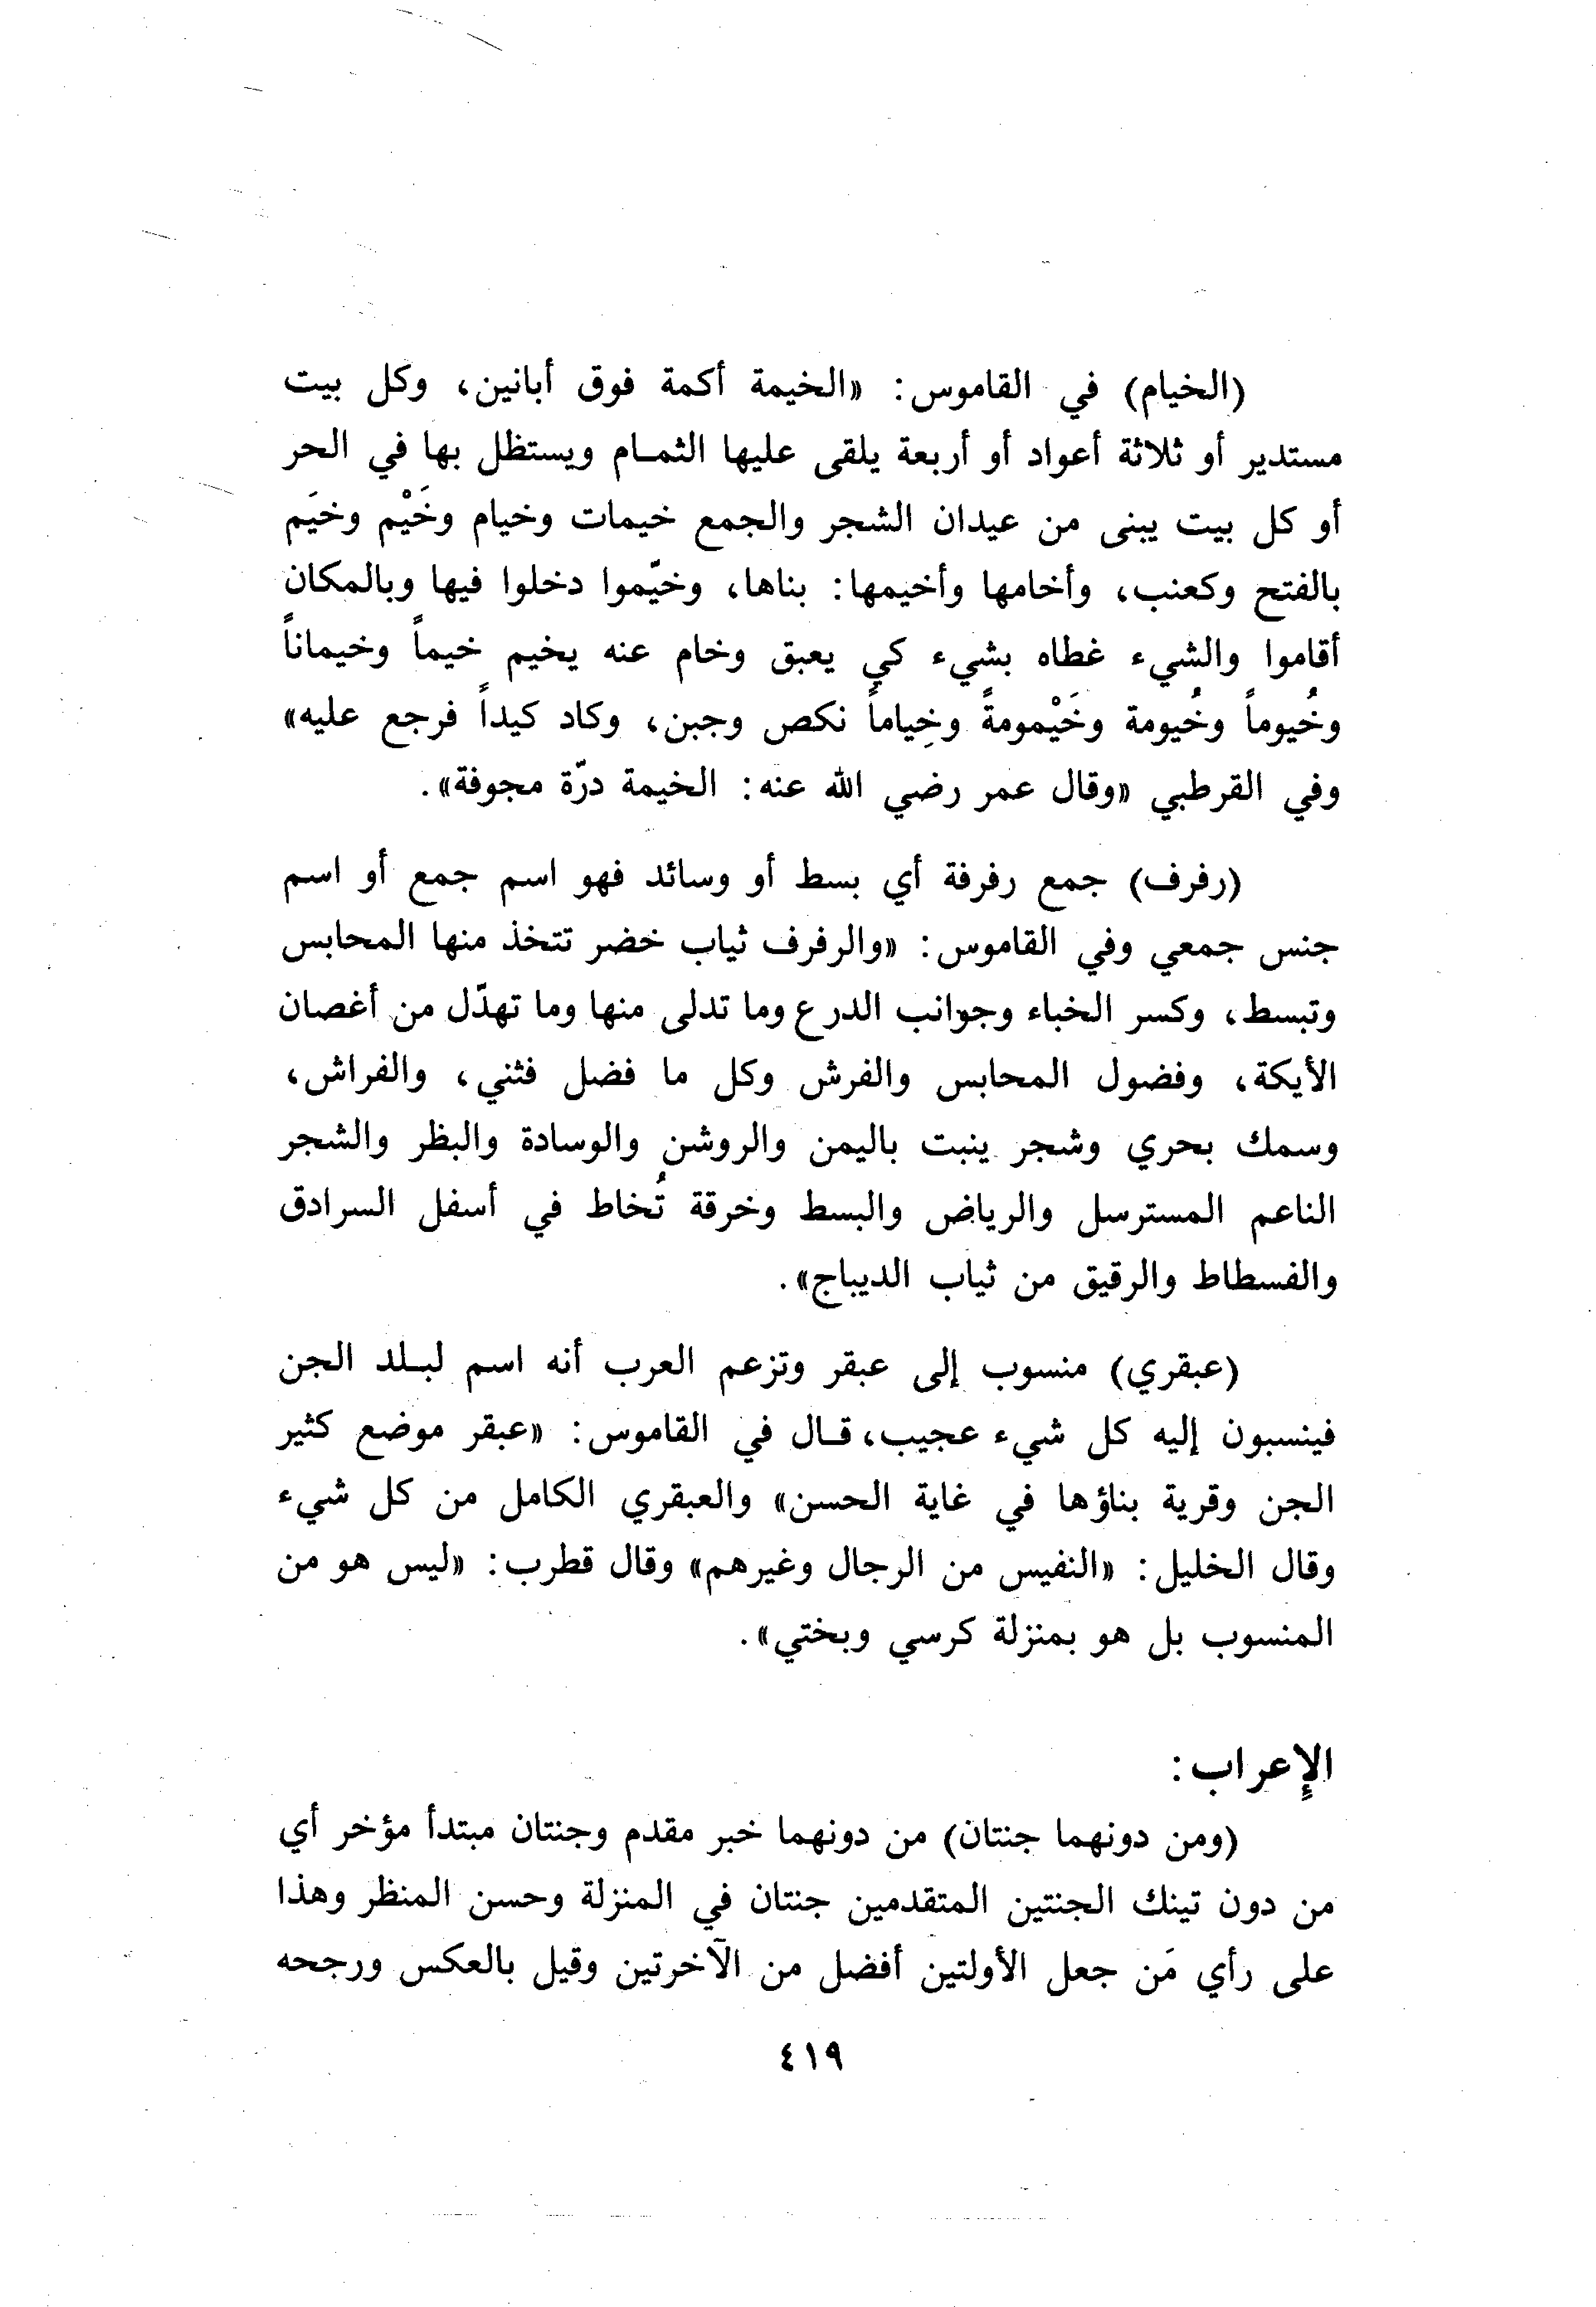 (الخيام) في القاموس: «الخيمة أكمة فوق أبانين، وكل بيت
مستدير أو ثلاثة أعواد أو أربعة يلقى عليها الثمـام ويستظل بها في الحر
أو كل بيت يبنى من عيدان الشجر والجمع خيمات وخيام وخَيْم وخيَم
بالفتح وكعنب، وأخامها وأخيمها: بناها، وخيّموا دخلوا فيها وبالمكان
أقاموا والشيء غطاه بشيء كي يعبق وخام عنه يخيم خيماً وخيماناً
وخُيوماً وخُيومة وخَيْمومةً وخِياماً نكص وجبن، وكاد كيداً فرجع عليه»
وفي القرطبي «وقال عمر رضي الله عنه: الخيمة درّة مجوفة».
(رفرف) جمع رفرفة أي بسط أو وسائد فهو اسم جمع أو اسم
جنس جمعي وفي القاموس: «والرفرف ثياب خضر تتخذ منها المحابس
وتبسط، وكسر الخباء وجوانب الدرع وما تدلى منها وما تهدّل من أغصان
الأيكة، وفضول المحابس والفرش وكل ما فضل فثني، والفراش،
وسمك بحري وشجر ينبت باليمن والروشن والوسادة والبظر والشجر
الناعم المسترسل والرياض والبسط وخرقة تُخاط في أسفل السرادق
والفسطاط والرقيق من ثياب الديباج».
(عبقري) منسوب إلى عبقر وتزعم العرب أنه اسم لبـلد الجن
فينسبون إليه كل شيء عجيب، قـال في القاموس: «عبقر موضع كثير
الجن وقرية بناؤها في غاية الحسن» والعبقري الكامل من كل شيء
وقال الخليل: «النفيس من الرجال وغيرهم» وقال قطرب: «ليس هو من
المنسوب بل هو بمنزلة كرسي وبختي».
الإعراب:
(ومن دونهما جنتان) من دونهما خبر مقدم وجنتان مبتدأ مؤخر أي
من دون تينك الجنتين المتقدمين جنتان في المنزلة وحسن المنظر وهذا
على رأي مَن جعل الأولتين أفضل من الآخرتين وقيل بالعكس ورجحه
٤١٩